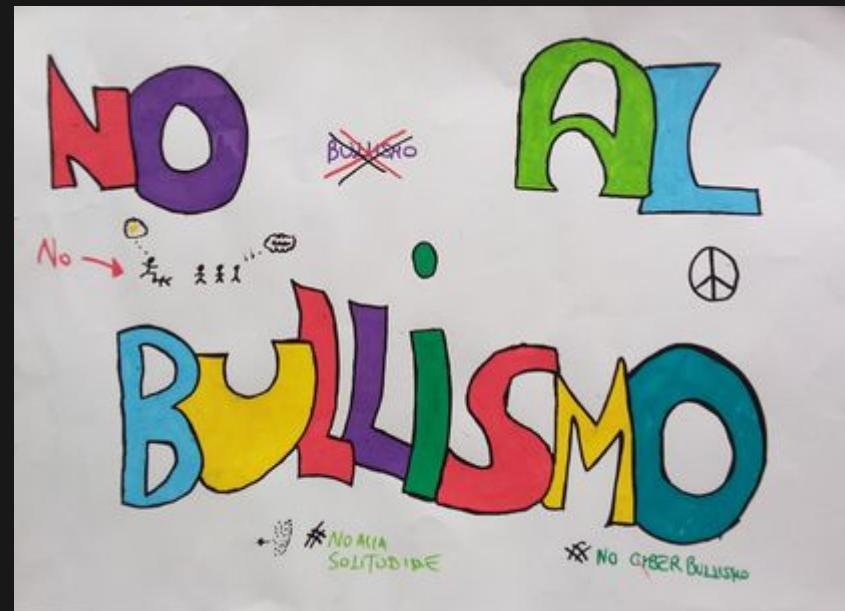 NO AL
BULLISMO
No
BULLISMO
#NO ALLA
SOLITUDINE
# NO CYBER BULLISMO